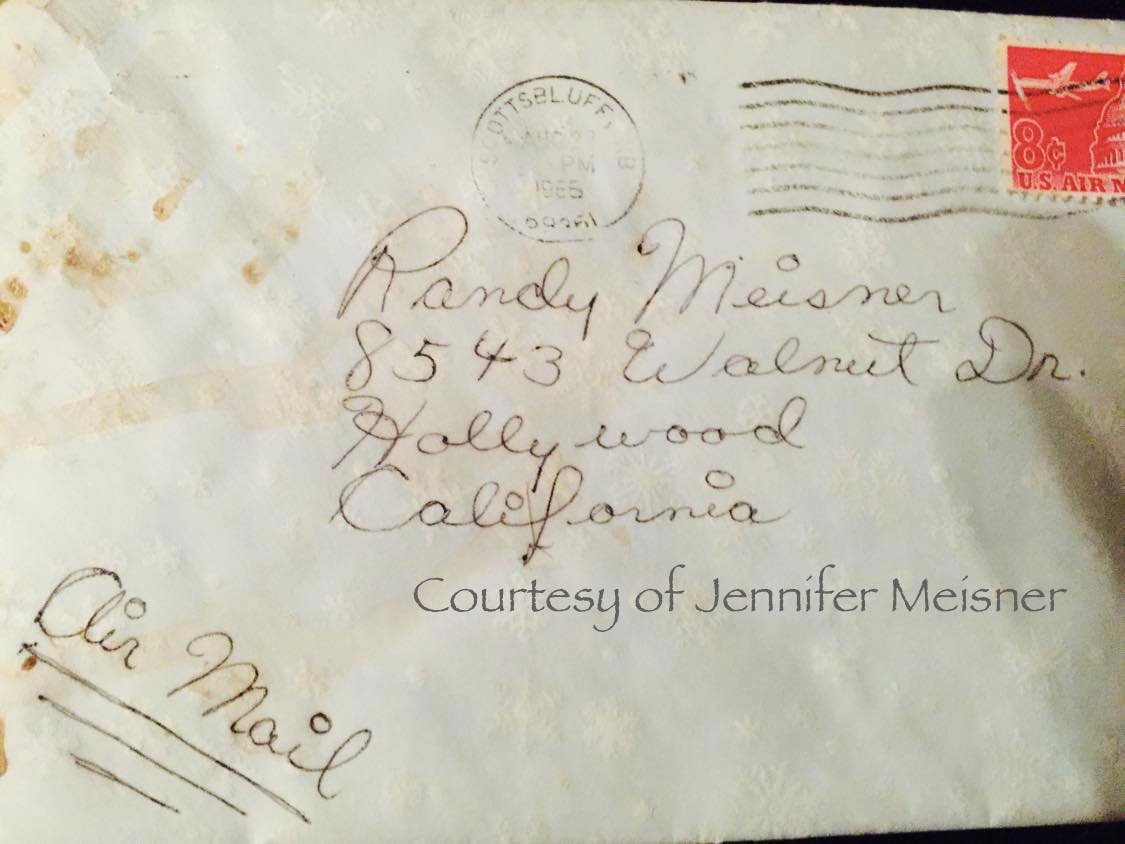 SCOTTSBLUFF, NEB
AUG
PM
1965
69361
8¢
U.S. AIR M
Randy Meisner
8543 Walnut Dr.
Hollywood
California
Courtesy of Jennifer Meisner
Air Mail